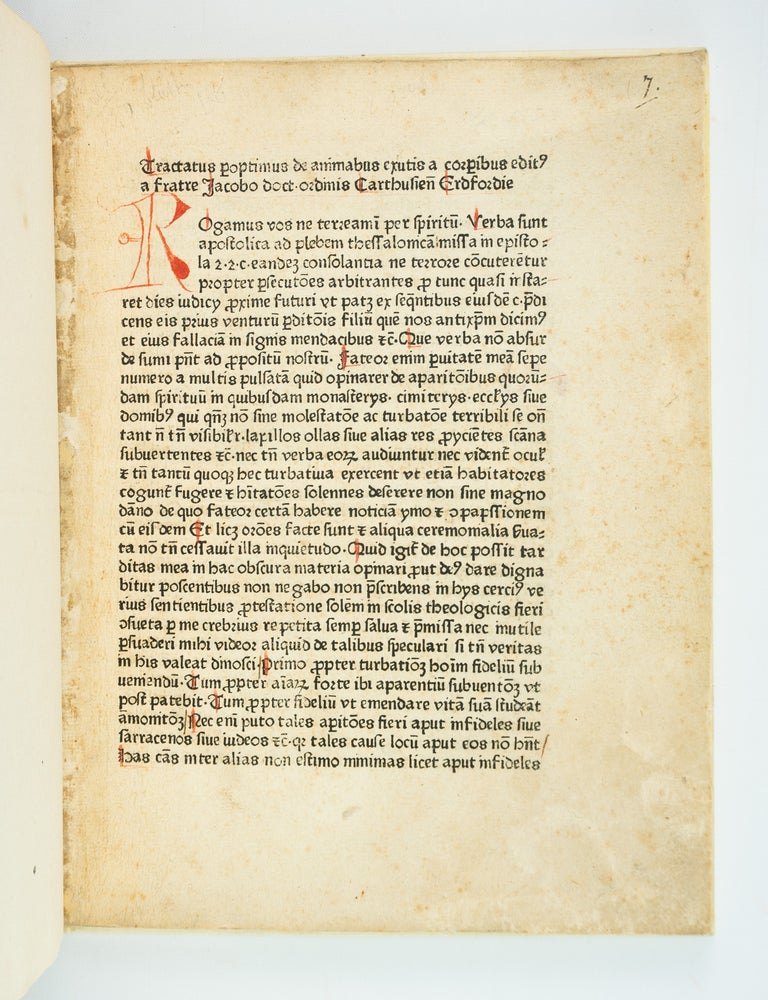 7.
Tractatus ꝑoptimus de animabus exutis a corꝑibus editꝰ
a fratre Jacobo doct·ordinis Carthusieñ Erdfordie
ROgamus vos ne terreami᷑ per spiritū· Verba sunt
apostolica ad plebem thessalonicā missa in episto⸗
la 2·2·c·eandeʒ consolantia ne terrore cōcuterētur
propter ꝑsecutōes arbitrantes ꝓ tunc quasi insta⸗
ret dies iudicy ꝓxime futuri vt patʒ ex seq̄ntibus eiusdē c·p̄di
cens eis prius venturū ꝑditōis filiū quē nos antixp̄m dicimꝰ
et eius fallaciā in signis mendacibus ⁊c̄· Que verba nō absur
de sumi pn̄t ad ꝓpositū nostrū· Fateor enim ꝑuitatē meā sepe
numero a multis pulsatā quid opinarer de aparitōibus quorū⸗
dam spirituū in quibusdam monasterys· cimiterys·eccl̄ys siue
domibꝰ qui qn̄ʒ nō sine molestatōe ac turbatōe terribili se on̄
tant n̄ tn̄ visibil̄r·lapillos ollas siue alias res ꝓycīetes scāna
subuertentes ⁊c̄·nec tn̄ verba eoꝝ audiuntur nec vident᷑ ocul̄
⁊ tn̄ tantū quoqʒ hec turbatiua exercent vt etiā habitatores
cogunt᷑ fugere ⁊ hītatōes solennes deserere non sine magno
dāno de quo fateor certā habere noticiā ymo ⁊ ɔpapssionem
cū eisdem Et licʒ orōes facte sunt ⁊ aliqua ceremomalia ẜua⸗
ta nō tn̄ cessauit illa inquietudo·Quid igit᷑ de hoc possit tar
ditas mea in hac obscura materia opinari ꝓut deꝰ dare digna
bitur poscentibus non negabo non p̄scribens in hys cerciꝰ ve
rius sentientibus ꝓtestatione solēm in scolis theologicis fieri
ɔsueta ꝑ me crebrius repetita semꝑ salua ⁊ p̄missa nec inutile
ꝑsuaderi mihi videor aliquid de talibus speculari si tn̄ veritas
in his valeat dinosci·primo ꝓpter turbatiōʒ hoīm fideliū sub
ueniendū·Tum ꝓpter aīaꝝ forte ibi aparentiū subuentōʒ vt
post patebit·Tum ꝓpter fideliū vt emendare vitā suā studeāt
āmonitōʒ Nec enī puto tales apitōes fieri aput infideles siue
sarracenos siue iudeos ⁊c̄·qꝛ tales cause locū aput eos nō hn̄t/
has cās inter alias non estimo minimas licet aput infideles